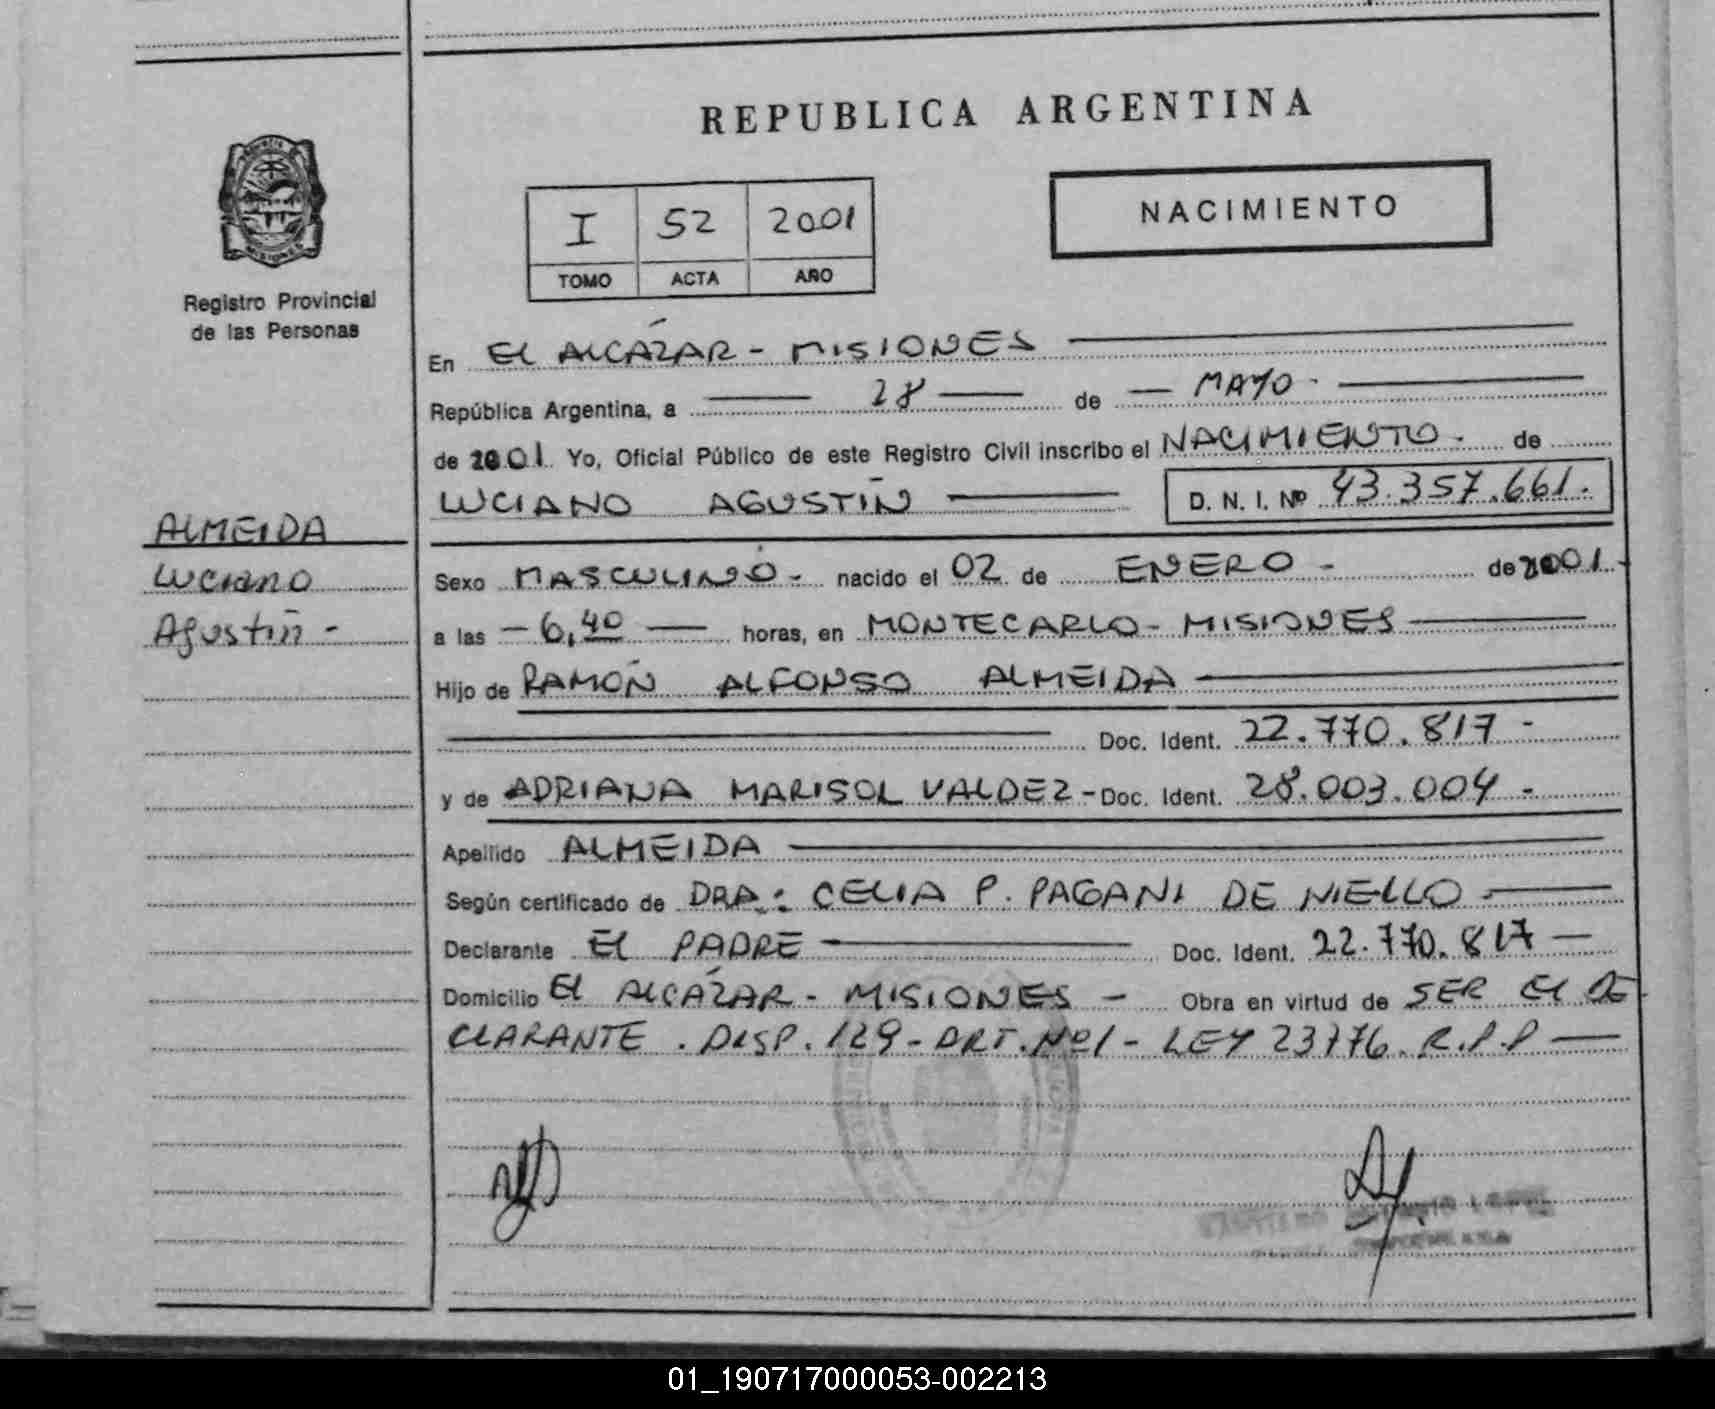 REPUBLICA ARGENTINA
MISIONES
Registro Provincial
de las Personas
I 52 2001
TOMO ACTA AÑO
NACIMIENTO
En El ALCÁZAR - MISIONES
República Argentina, a 28 de MAYO
de 2001 Yo, Oficial Público de este Registro Civil inscribo el NACIMIENTO. de
LUCIANO AGUSTÍN D. N. I. Nº 43.357.661.
ALMEIDA
Luciano
Agustín -
Sexo MASCULINO - nacido el 02 de ENERO - de 2001.
a las - 6,40 horas, en MONTECARLO - MISIONES
Hijo de RAMÓN ALFONSO ALMEIDA
Doc. Ident. 22.770.817 -
y de ADRIANA MARISOL VALDEZ - Doc. Ident. 28.003.004 -
Apellido ALMEIDA
Según certificado de DRA: CELIA P. PAGANI DE NIELLO
Declarante El PADRE Doc. Ident. 22.770.817
Domicilio El ALCÁZAR - MISIONES - Obra en virtud de SER El DE
CLARANTE . DISP. 129 - ART. Nº1 - LEY 23776. R.P.P
01_190717000053-002213